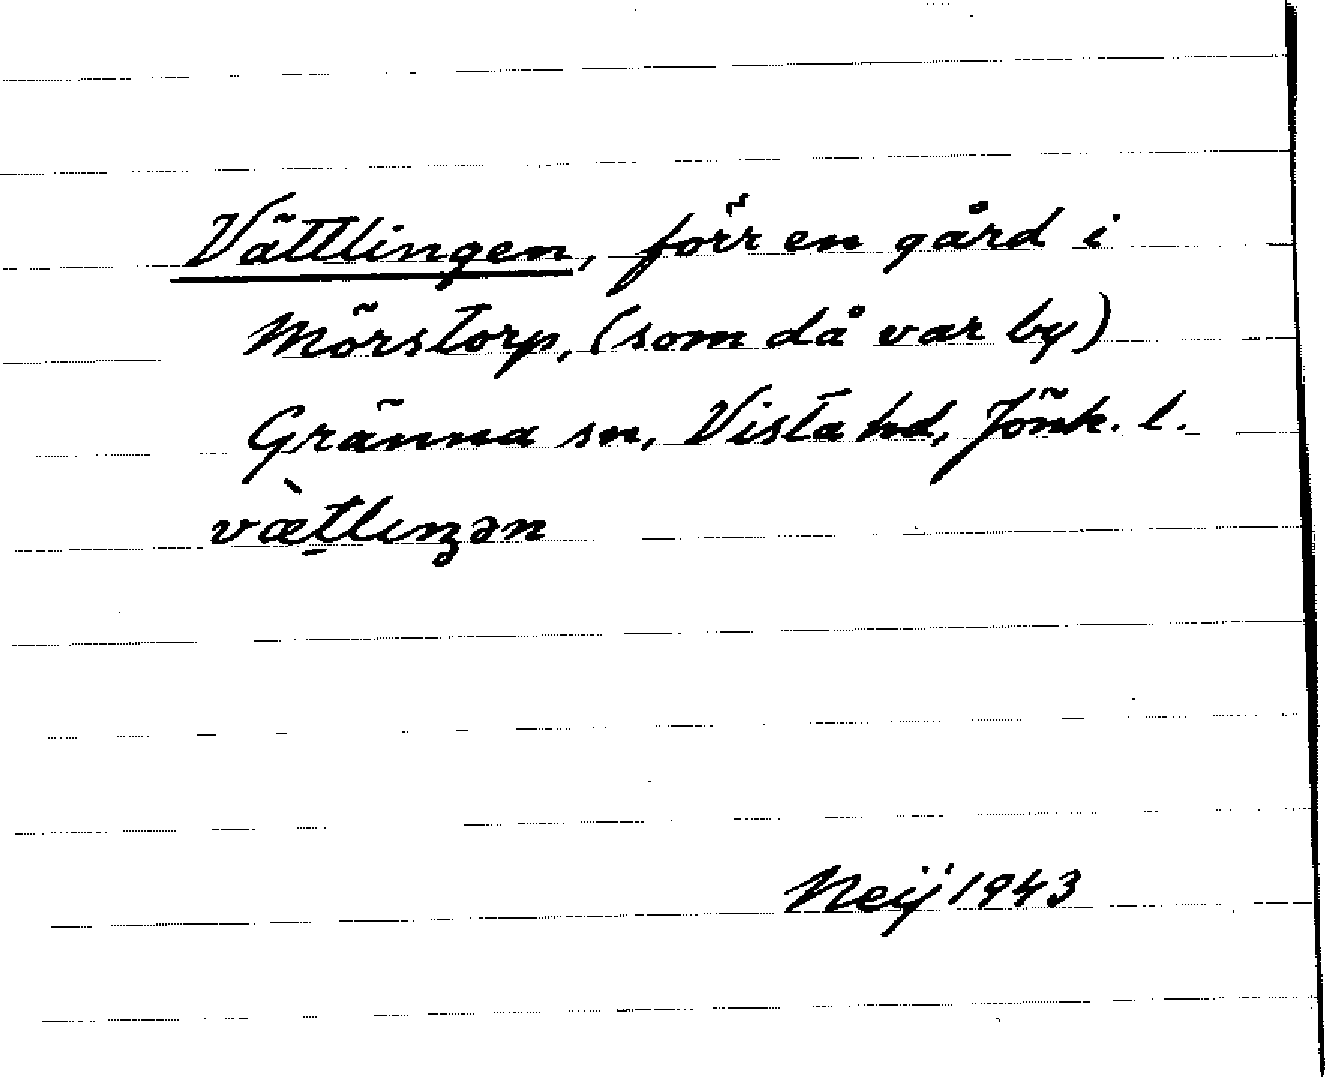 Vättlingen, förr en gård i
Mörstorp, (som då var by)
Gränna sn, Vista hd, Jönk. l.
væ̀t̠lıŋən
Neij 1943